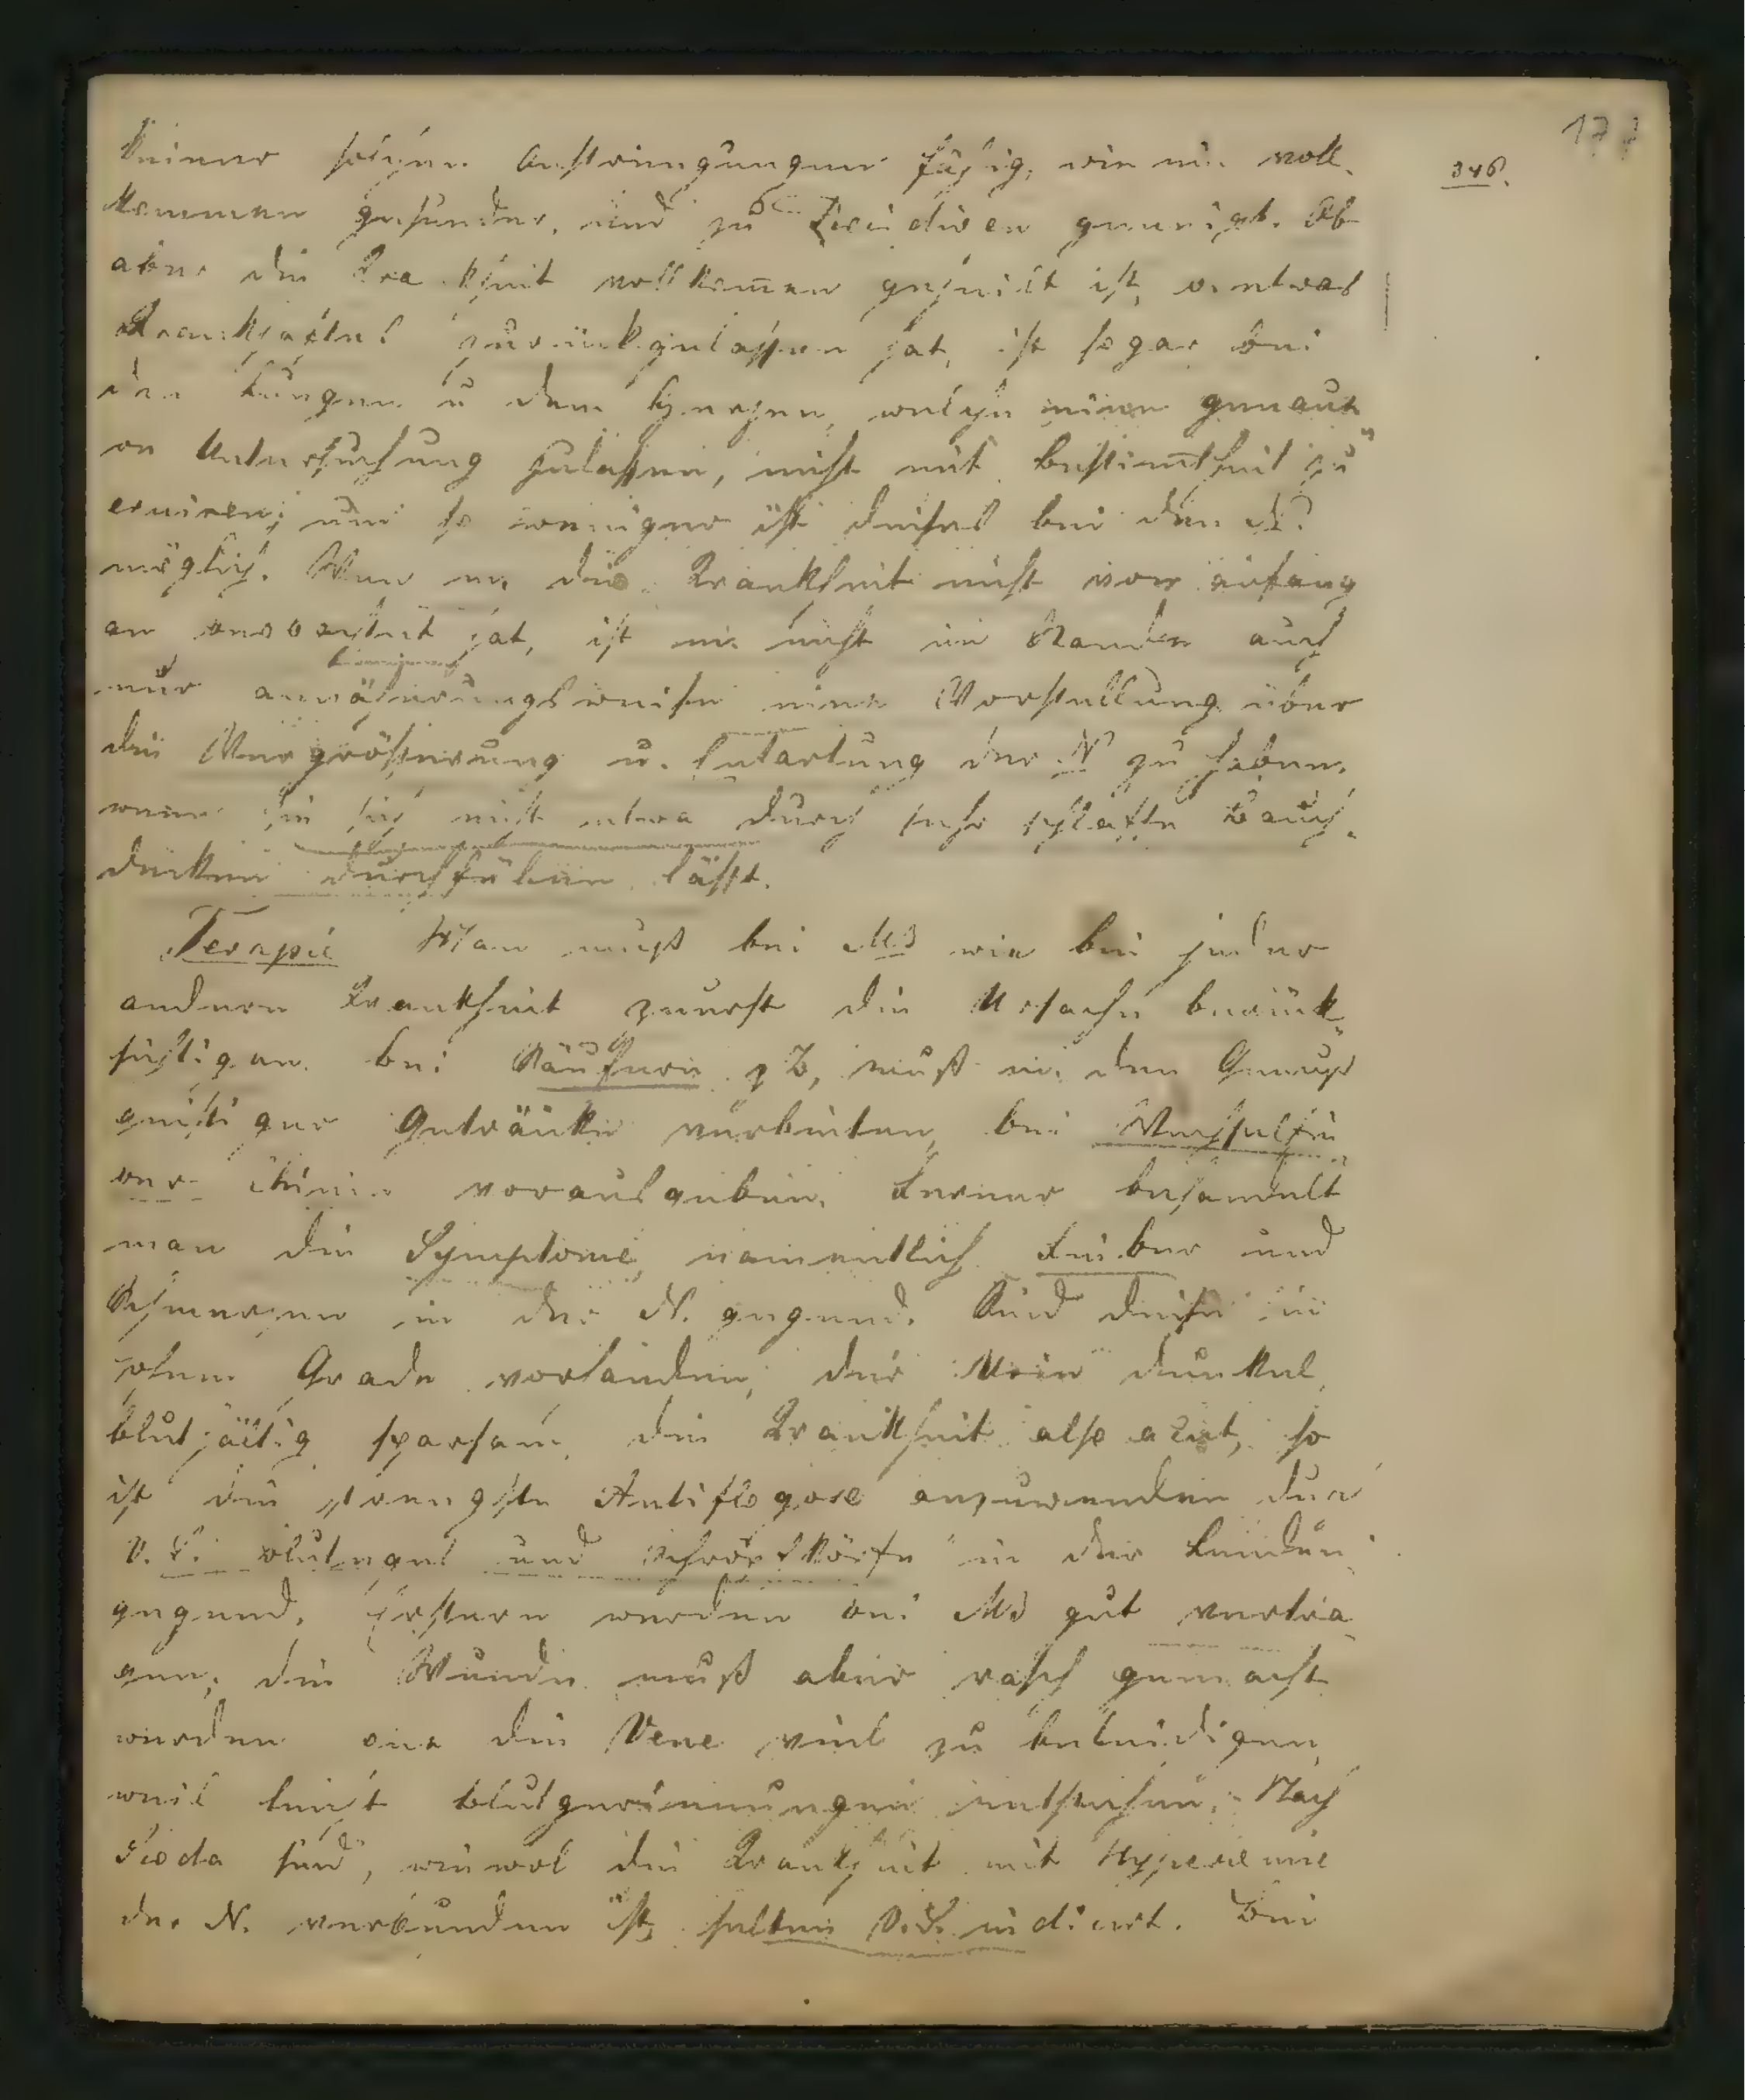 177
346.
keiner solchen Anstrengungen fähig, wie ein voll-
kommen gesunder, und zu Recidiven geneigt. Ob
aber die Krankheit vollkommen geheilt ist, o. etwas
Krankhaftes zurükgelassen hat, ist sogar bei
den Lungen u dem Herzen, welche einen genau-
en Untersuchung zulassen, nicht mit Bestimtheit zu
eruiren; um so weniger ist dieses bei den N.
möglich. Wen m. die Krankheit nicht von anfang
an beobachtet hat, ist m. nicht im Stande auch
nur annäherungsweise eine Vorstellung über
die Vergrößerung u. Entartung der N zu haben,
wenn sie sich nicht etwa durch sehr schlaffe Bauch-
decken durchfülen läßt.
Terapie Man muß bei MB wie bei jeder
anderen Krankheit zuerst die Ursache berük-
sichtigen. bei Säufern zB, muß m. den Genuß
geistiger Getränke verbieten, bei Wechselfie-
ber Chinin vorausgeben. Ferner behandelt
man die Symptome, namentlich Fieber und
Schmerzen in der N. gegend. Sind diese in
ohem Grade vorhanden, der Urin dunkel,
bluthältig sparsam, die Krankheit also acut, so
ist die strengste Antiflogose anzuwenden durch
V. S. Blutegel und Schröpfköpfe in der Lenden-
gegend. Erstere werden bei MB gut vertra-
gen; die Wunde muß aber rasch gemacht
werden one die Vene viel zu beleidigen,
weil leicht Blutgerinnungen entstehen. Nach
Skoda sind, wiewol die Krankheit mit Hyperemie
der N. verbunden ist, selten V.S. indicirt. Bei